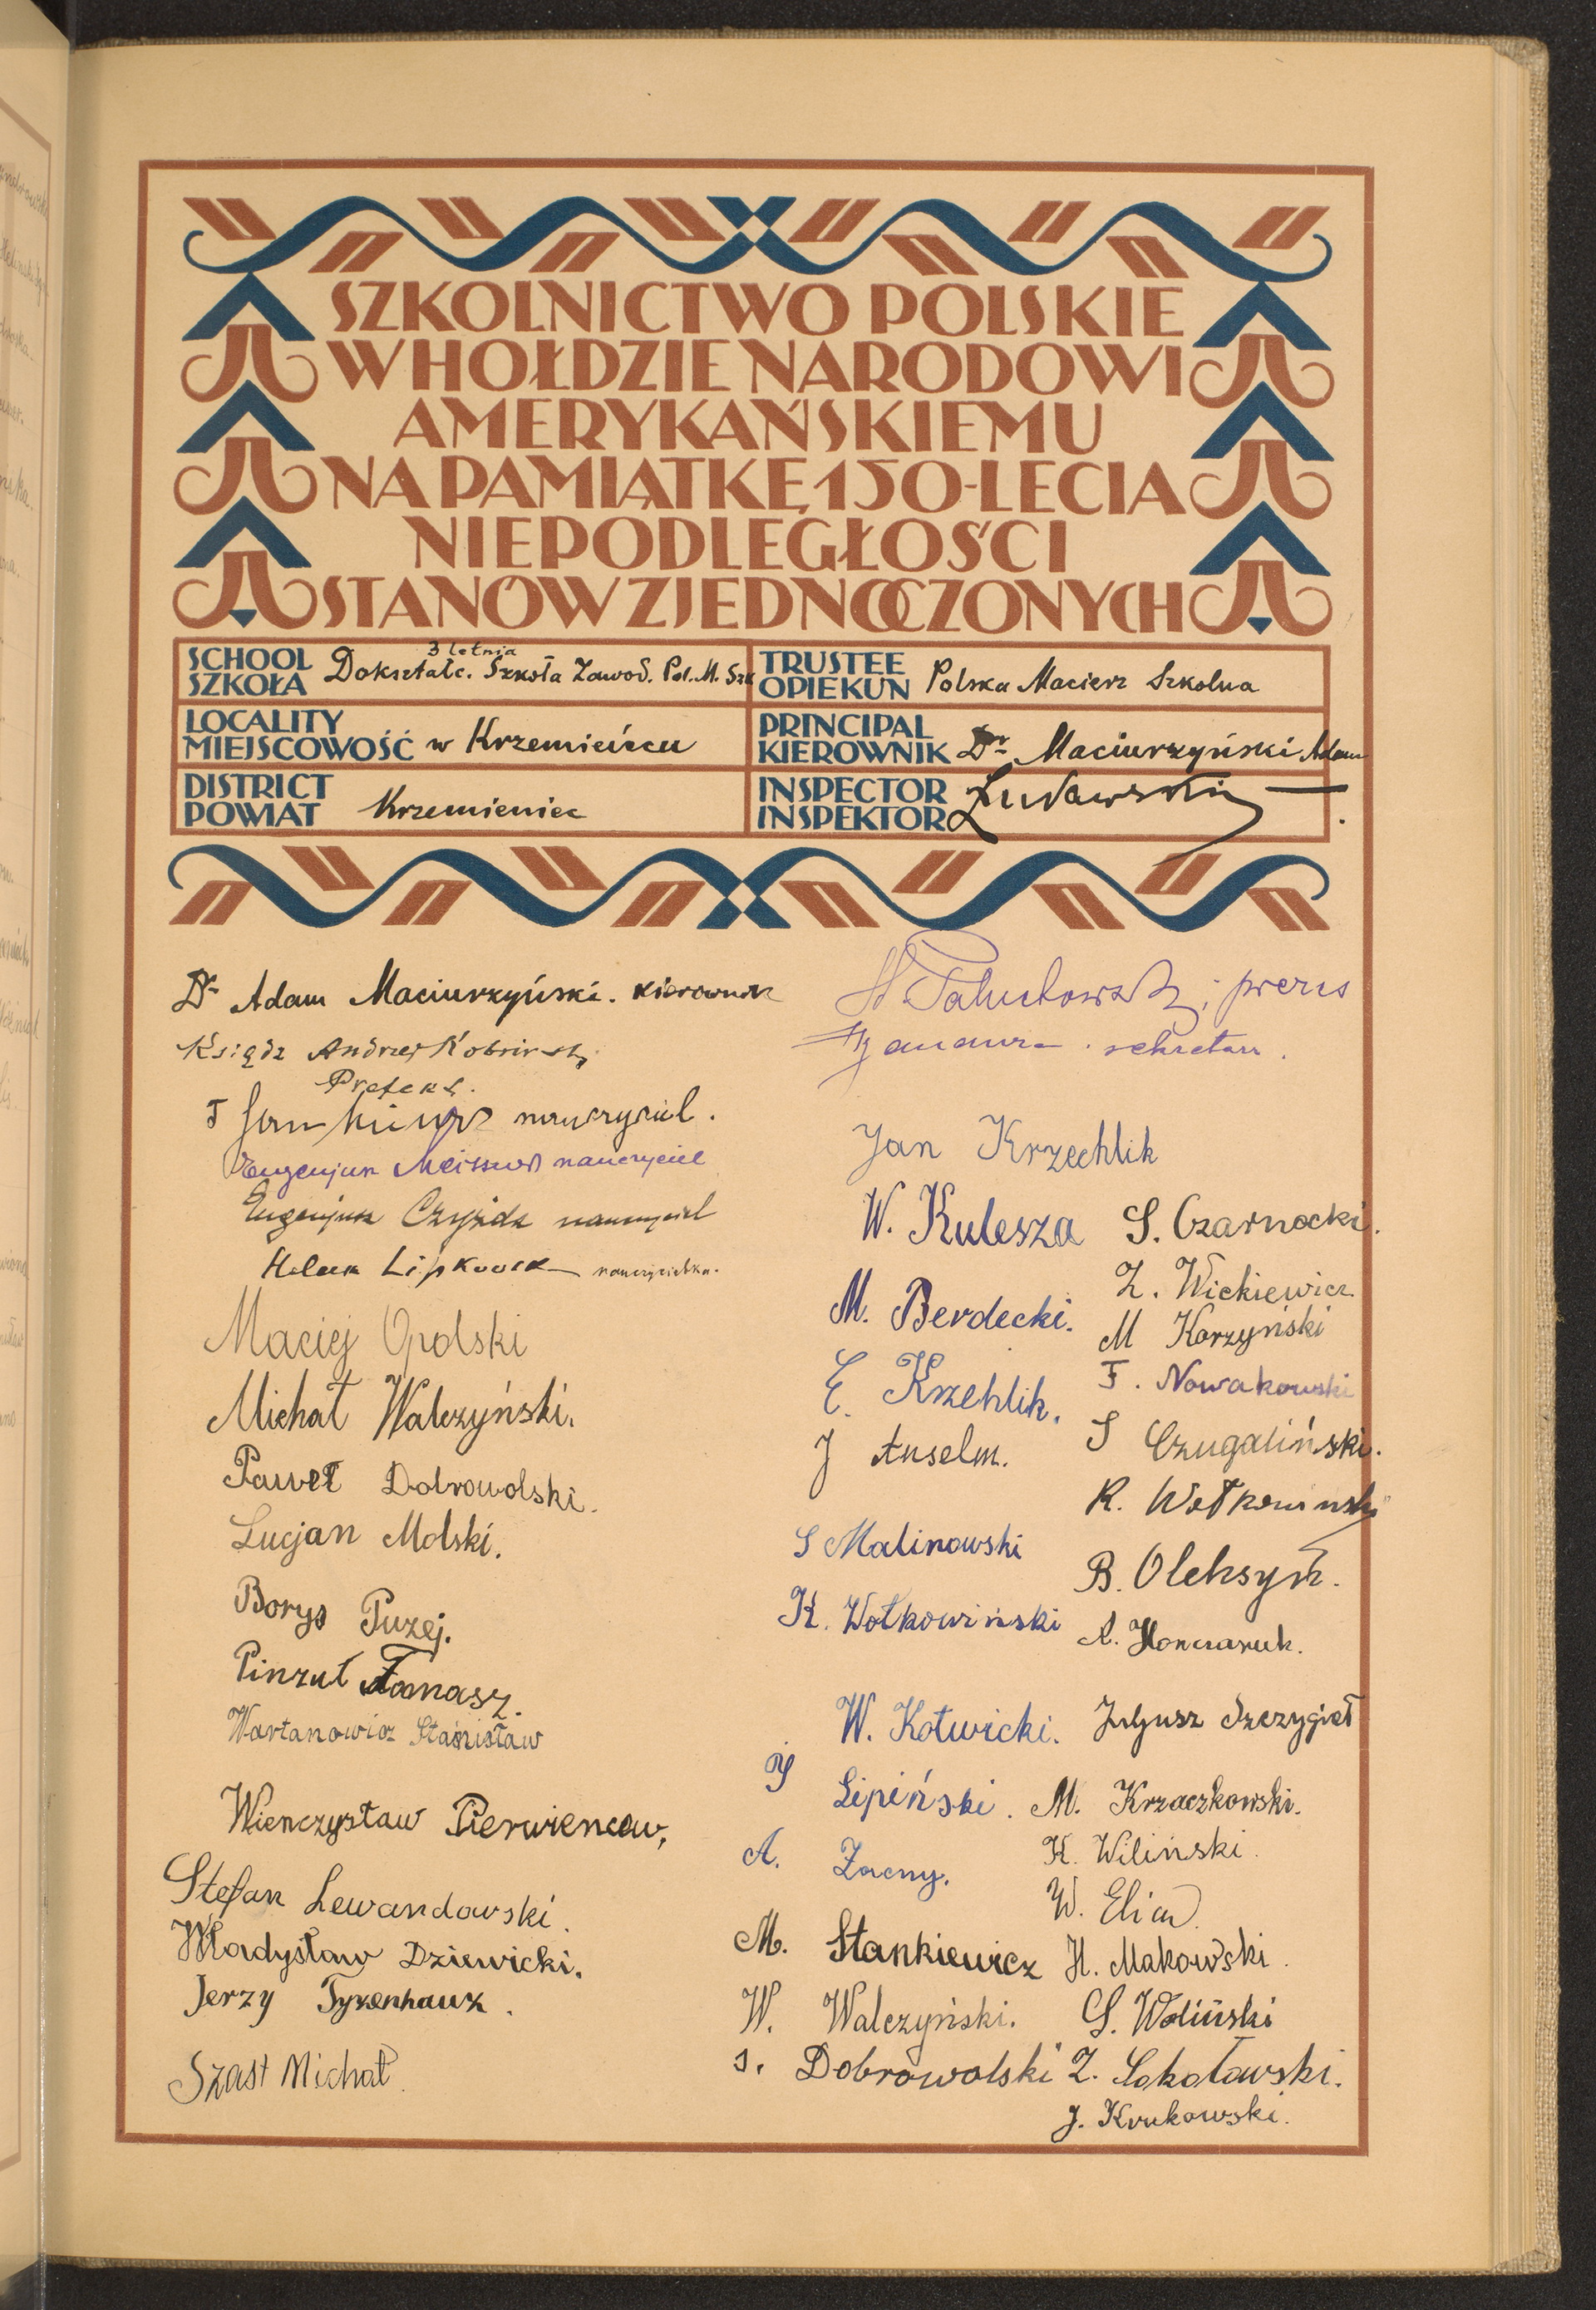 SZKOLNICTWO POLSKIE
W HOŁDZIE NARODOWI
AMERYKAŃSKIEMU
NA PAMIĄTKĘ 150-LECIA
NIEPODLEGŁOŚCI
STANÓW ZJEDNOCZONYCH
SCHOOL
SZKOŁA
3 letnia
Dokształc. Szkoła Zawod. Pol. M. Szk
TRUSTEE
OPIEKUN
Polska Macierz Szkolna
LOCALITY
MIEJSCOWOŚĆ w Krzemieńcu
PRINCIPAL
KIEROWNIK Dr Maciurzyński Adam
DISTRICT
POWIAT Krzemieniec
INSPECTOR
INSPEKTOR
Dr Adam Maciurzyński. kierownik
Ksiądz Andrzej
Prefekt.
nauczyciel.
Eugenjusz Meissner nauczyciel
Eugenjusz Czyżdk nauczyciel
Helena Lipkowska nauczycielka.
Maciej Opolski
Michał Walczyński.
Paweł Dobrowolski.
Lucjan Molski.
Borys Puzej.
Pinzuł Tomasz.
Wartanowicz Stanisław
Wienczysław Pierwiencew,
Stefan Lewandowski.
Władysław Dziewicki.
Jerzy Tyzenhauz.
Szast Michał.
prezes
sekretarz.
Jan Krzechlik
W. Kulesza
M. Berdecki.
E. Krzehlik.
J Anselm.
S Malinowski
K. Wołkowiński
W. Kotwicki.
Lipiński.
A. Zacny.
M. Stankiewicz
W. Walczyński.
S. Dobrowolski
S. Czarnocki.
Z. Wickiewicz.
M Korzyński
F. Nowakowski
S Czugaliński.
R. Wołkowinski
B. Oleksyn.
A. Honczaruk.
Juljusz Szczygieł
M. Krzaczkowski.
K. Wiliński.
W. Elias.
H. Makowski.
S. Woliński
Z. Sokołowski.
J. Krukowski.